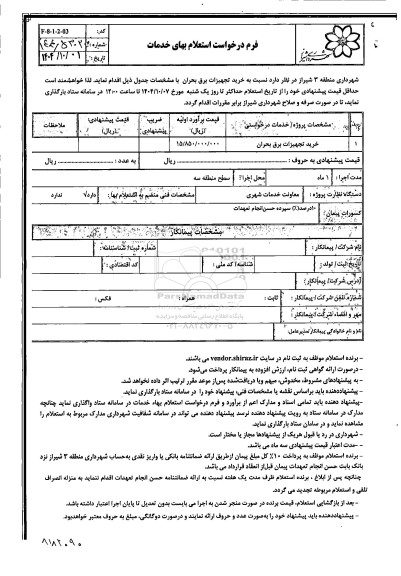 کد: F-8-1-2-03
فرم درخواست استعلام بهای خدمات
۱۴۰۴/۱۰/۰۱
شهرداری منطقه ۳ شیراز در نظر دارد نسبت به خرید تجهیزات برق بحران با مشخصات جدول ذیل اقدام نماید. لذا خواهشمند است
حداقل قیمت پیشنهادی خود را از تاریخ استعلام حداکثر تا روز یک شنبه مورخ ۱۴۰۴/۱۰/۰۷ تا ساعت ۱۲:۰۰ در سامانه ستاد بارگذاری
نمایید، تا در صورت صرفه و صلاح شهرداری شیراز برابر مقررات اقدام گردد.
ردیف مشخصات پروژه/ خدمات درخواستی قیمت برآورد اولیه (ریال) ضریب پیشنهادی قیمت پیشنهادی (ریال) ملاحظات
۱ خرید تجهیزات برق بحران ۱۵/۸۵۰/۰۰۰/۰۰۰
قیمت پیشنهادی به حروف : ریال به عدد : ریال
مدت اجرا : ۱ ماه محل اجرا : سطح منطقه سه
دستگاه نظارت پروژه : معاونت خدمات شهری مشخصات فنی منضم به استعلام بها : دارد ندارد
کسورات پیمان: ۱۰درصد(٪) سپرده حسن انجام تعهدات
مشخصات پیمانکار
نام شرکت/ پیمانکار : شماره ثبت/ شناسنامه:
تاریخ ثبت/ تولد : شناسه/ کد ملی : کد اقتصادی :
آدرس شرکت/ پیمانکار :
شماره تلفن شرکت/ پیمانکار : ثابت : همراه : فکس :
مهر و امضاء شرکت/ پیمانکار:
نام و نام خانوادگی پیمانکار/ مدیرعامل:
ParsNamadData
پایگاه اطلاع رسانی مناقصه و مزایده
۰۲۱-۸۸۳۴۹۶۷۰-۵
– برنده استعلام موظف به ثبت نام در سایت vendor.shiraz.ir می باشند.
– درصورت ارائه گواهی ثبت نام، ارزش افزوده به پیمانکار پرداخت می‌شود.
– به پیشنهادهای مشروط، مخدوش، مبهم ویا دریافت‌شده پس‌از موعد مقرر ترتیب اثر داده نخواهد شد.
– پیشنهاددهنده باید براساس نقشه یا مشخصات فنی، پیشنهاد خود را در سامانه ستاد بارگذاری نماید.
–پیشنهاد دهنده باید تمامی اسناد و مدارک اعم از برآورد و فرم درخواست استعلام بهاء خدمات در سامانه ستاد واگذاری نماید چنانچه
مدارک در سامانه ستاد به رویت پیشنهاد دهنده نرسد پیشنهاد دهنده می تواند در سامانه شفافیت شهرداری مدارک مربوط به استعلام را
مشاهده نماید و در سامان ستاد بارگذاری نماید.
– شهرداری در رد یا قبول هریک از پیشنهادها مجاز یا مختار است.
– مدت اعتبار قیمت پیشنهادی سه ماه می باشد.
– برنده استعلام موظف به پرداخت ۱۰٪ کل مبلغ پیمان ازطریق ارائه ضمانتنامه بانکی یا واریز نقدی به‌حساب شهرداری منطقه ۳ شیراز نزد
بانک بابت حسن انجام تعهدات پیمان قبل‌از انعقاد قرارداد می باشد.
چنانچه پس از ابلاغ ، برنده استعلام ظرف مدت یک هفته نسبت به ارائه ضمانتنامه حسن انجام تعهدات اقدام ننماید به منزله انصراف
تلقی و استعلام مربوطه تجدید می گردد.
– بعد از بازگشایی استعلام، قیمت برنده در صورت منجر شدن به اجرا می بایست بدون تعدیل تا پایان اجرا اعتبار داشته باشد.
– پیشنهاددهنده باید پیشنهاد خود را به‌صورت عدد و حروف ارائه نمایند و درصورت دوگانگی، مبلغ به حروف معتبر خواهدبود.
۹۱۸۲۰۹۵